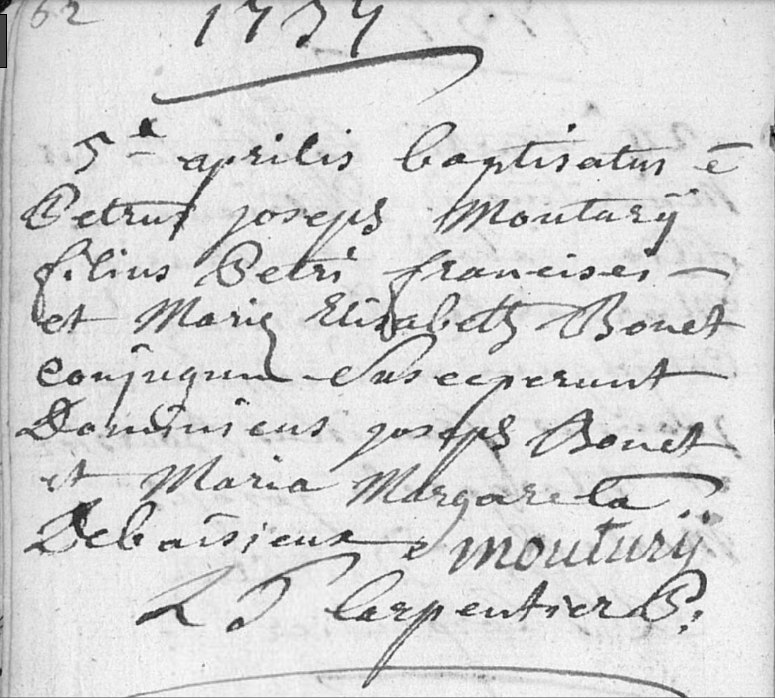 162
1757
5ᵃ aprilis baptisatus ē
Petrus joseph Monturÿ
filius Petri francisci
et Mariæ Elisabeth Bonet
conjugum Susceperunt
Dominicus joseph Bonet
et Maria Margareta
Debaisieux
monturÿ
Carpentier P.